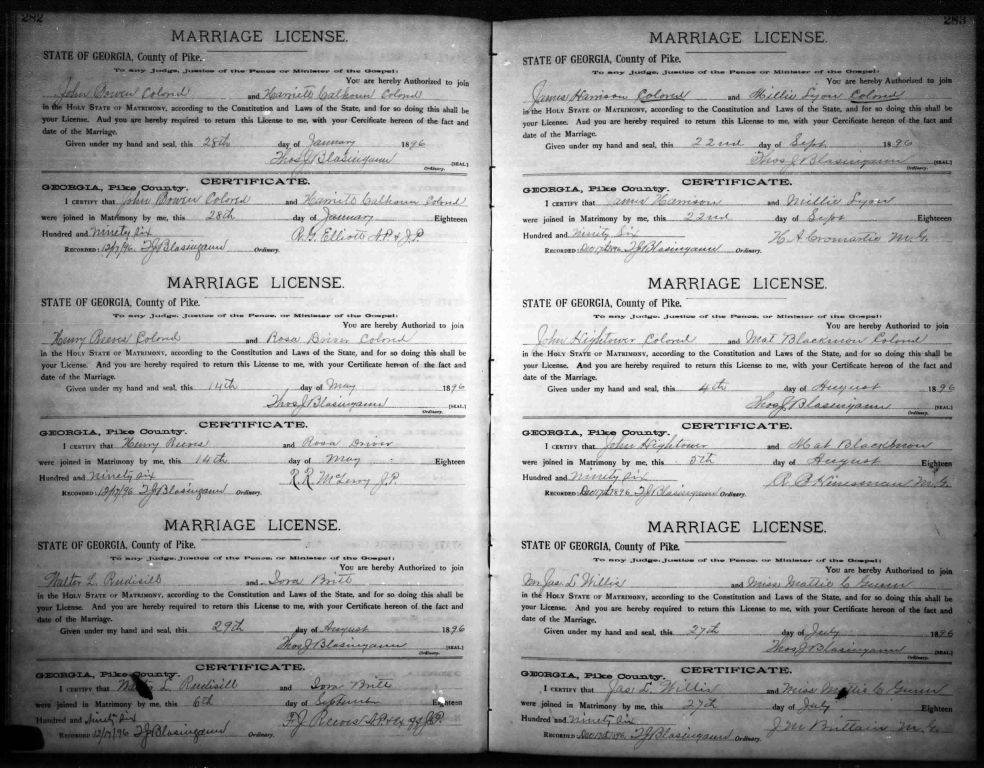 282
MARRIAGE LICENSE.
STATE OF GEORGIA, County of Pike.
To any Judge, Justice of the Peace, or Minister of the Gospel:
You are hereby Authorized to join
John Bowen Colord and Harriett Calhoun Colord
in the HOLY STATE OF MATRIMONY, according to the Constitution and Laws of the State, and for so doing this shall be
your License. And you are hereby required to return this License to me, with your Certificate hereon of the fact and
date of the Marriage.
Given under my hand and seal, this 28th day of January 1896
Thos J Blasingann [SEAL.]
Ordinary.
CERTIFICATE.
GEORGIA, Pike County.
I CERTIFY that John Bowen Colord and Harriett Calhoun Colord
were joined in Matrimony by me, this 28th day of January Eighteen
Hundred and Ninety Six R. G. Elliott N.P. & J.P.
RECORDED: 12/17/96 TJ Blasingann Ordinary.
MARRIAGE LICENSE.
STATE OF GEORGIA, County of Pike.
To any Judge, Justice of the Peace, or Minister of the Gospel:
You are hereby Authorized to join
Henry Reeves Colord and Rosa Colord
in the HOLY STATE OF MATRIMONY, according to the Constitution and Laws of the State, and for so doing this shall be
your License. And you are hereby required to return this License to me, with your Certificate hereon of the fact and
date of the Marriage.
Given under my hand and seal, this 14th day of May 1896
Thos J Blasingann [SEAL.]
Ordinary.
CERTIFICATE.
GEORGIA, Pike County.
I CERTIFY that Henry Reeves and Rosa
were joined in Matrimony by me, this 14th day of May Eighteen
Hundred and Ninety Six R. R. McLeroy J.P.
RECORDED: 12/17/96 TJ Blasingann Ordinary.
MARRIAGE LICENSE.
STATE OF GEORGIA, County of Pike.
To any Judge, Justice of the Peace, or Minister of the Gospel:
You are hereby Authorized to join
Walter L Rudisill and Dora Britt
in the HOLY STATE OF MATRIMONY, according to the Constitution and Laws of the State, and for so doing this shall be
your License. And you are hereby required to return this License to me, with your Certificate hereon of the fact and
date of the Marriage.
Given under my hand and seal, this 29th day of August 1896
Thos J Blasingann [SEAL.]
Ordinary.
CERTIFICATE.
GEORGIA, Pike County.
I CERTIFY that Walter L Rudisill and Dora Britt
were joined in Matrimony by me, this 6th day of September Eighteen
Hundred and Ninety Six F. J. Reeves N.P. & J.P.
RECORDED: 12/17/96 TJ Blasingann Ordinary.
283
MARRIAGE LICENSE.
STATE OF GEORGIA, County of Pike.
To any Judge, Justice of the Peace or Minister of the Gospel:
You are hereby Authorized to join
James Harrison Colord and Millie Lyon Colord
in the HOLY STATE OF MATRIMONY, according to the Constitution and Laws of the State, and for so doing this shall be
your License. And you are hereby required to return this License to me, with your Certificate hereon of the fact and
date of the Marriage.
Given under my hand and seal, this 22nd day of Sept 1896
Thos J Blasingann [SEAL.]
Ordinary.
CERTIFICATE.
GEORGIA, Pike County.
I CERTIFY that James Harrison and Millie Lyon
were joined in Matrimony by me, this 22nd day of Sept Eighteen
Hundred and Ninety Six H. A Cromartie M.G.
RECORDED: Dec 17th 1896 TJ Blasingann Ordinary.
MARRIAGE LICENSE.
STATE OF GEORGIA, County of Pike.
To any Judge, Justice of the Peace, or Minister of the Gospel:
You are hereby Authorized to join
John Hightower Colord and Mat Blackmon Colord
in the HOLY STATE OF MATRIMONY, according to the Constitution and Laws of the State, and for so doing this shall be
your License. And you are hereby required to return this License to me, with your Certificate hereon of the fact and
date of the Marriage.
Given under my hand and seal, this 4th day of August 1896
Thos J Blasingann [SEAL.]
Ordinary.
CERTIFICATE.
GEORGIA, Pike County.
I CERTIFY that John Hightower and Mat Blackmon
were joined in Matrimony by me, this 5th day of August Eighteen
Hundred and Ninety Six R. B. M.G.
RECORDED: Dec 17th 1896 TJ Blasingann Ordinary.
MARRIAGE LICENSE.
STATE OF GEORGIA, County of Pike.
To any Judge, Justice of the Peace, or Minister of the Gospel:
You are hereby Authorized to join
Mr Jas L Willis and Miss Mattie C Gunn
in the HOLY STATE OF MATRIMONY, according to the Constitution and Laws of the State, and for so doing this shall be
your License. And you are hereby required to return this License to me, with your Certificate hereon of the fact and
date of the Marriage.
Given under my hand and seal, this 27th day of July 1896
Thos J Blasingann [SEAL.]
Ordinary.
CERTIFICATE.
GEORGIA, Pike County.
I CERTIFY that Jas. L. Willis and Miss Mattie C Gunn
were joined in Matrimony by me, this 27th day of July Eighteen
Hundred and Ninety Six J M Brittain M.G.
RECORDED: Dec 17th 1896 TJ Blasingann Ordinary.